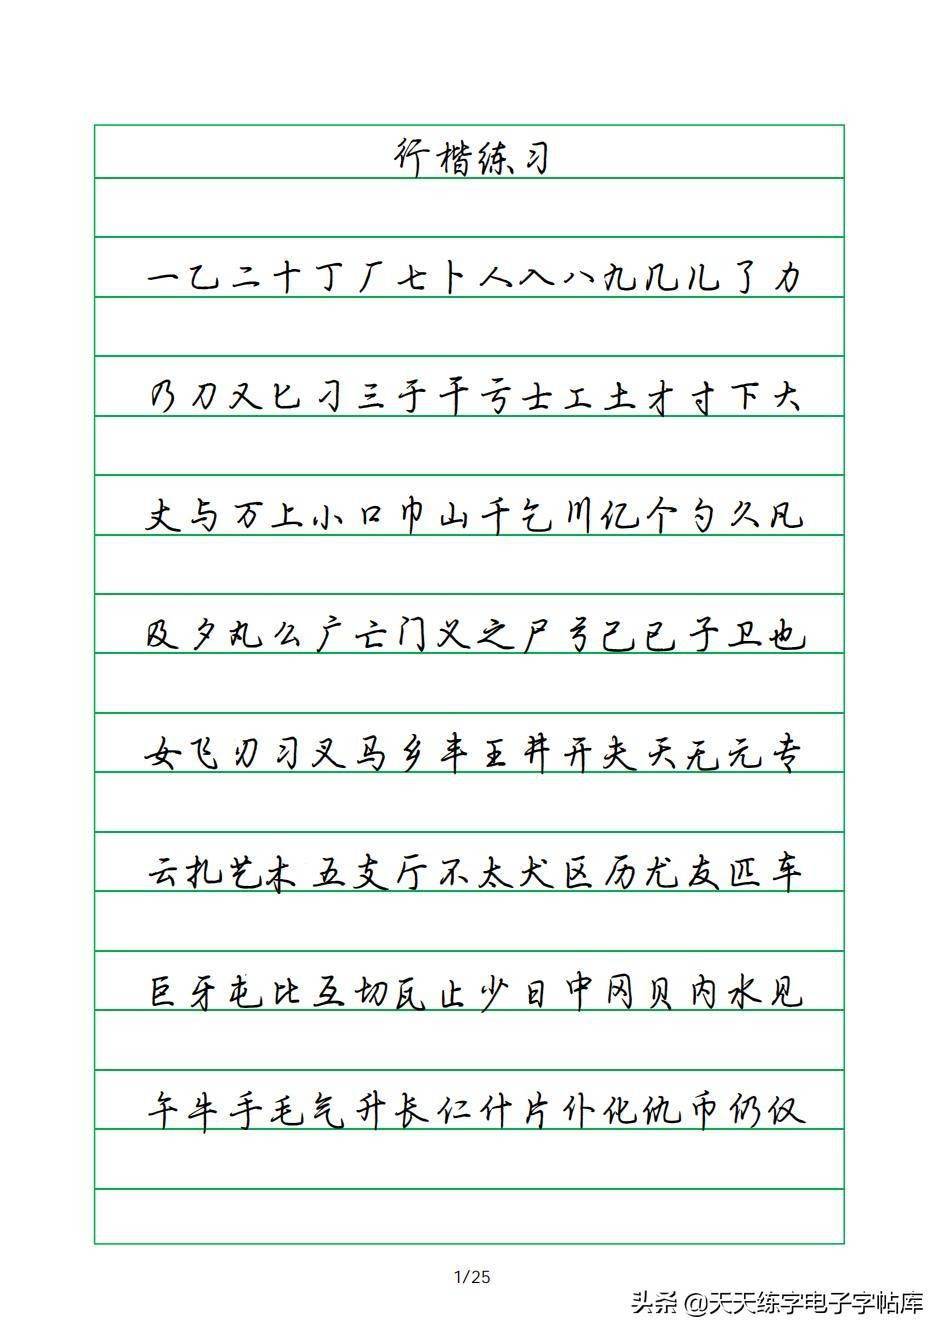 行楷练习
一乙二十丁厂七卜人入八九几儿了力
乃刀又匕刁三于干亏士工土才寸下大
丈与万上小口巾山千乞川亿个勺久凡
及夕丸么广亡门义之尸弓己已子卫也
女飞刃习叉马乡丰王井开夫天无元专
云扎艺木五支厅不太犬区历尤友匹车
巨牙屯比互切瓦止少日中冈贝内水见
午牛手毛气升长仁什片仆化仇币仍仅
1/25
头条 @天天练字电子字帖库